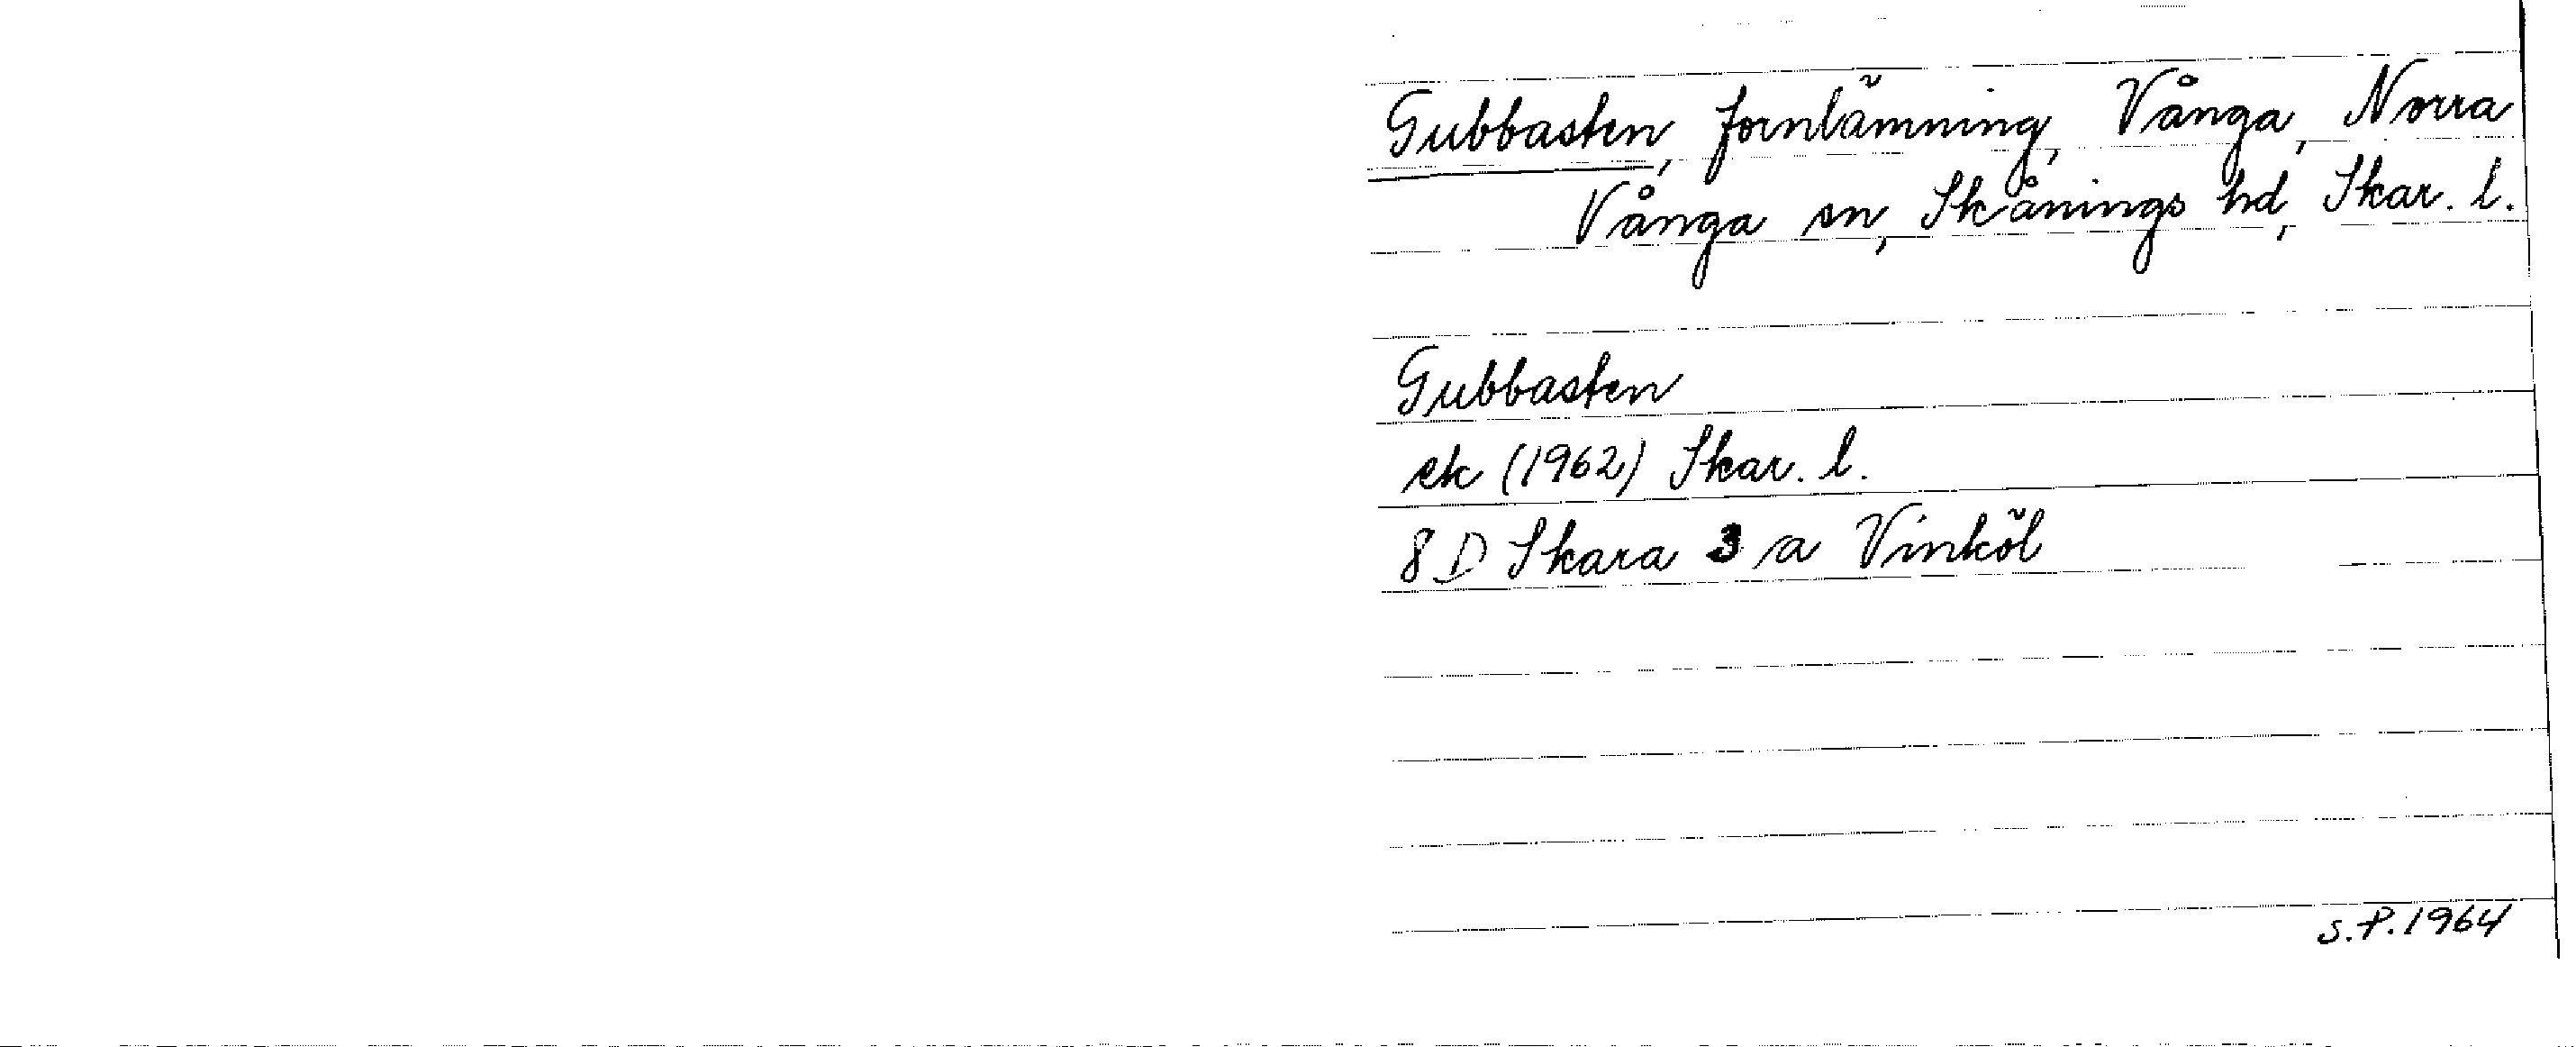 Gubbasten, fornlämning, Vånga, Norra
Vånga sn, Skånings hd, Skar. l.
Gubbasten
ek (1962) Skar. l.
8 D Skara 3 a Vinköl
S.P. 1964